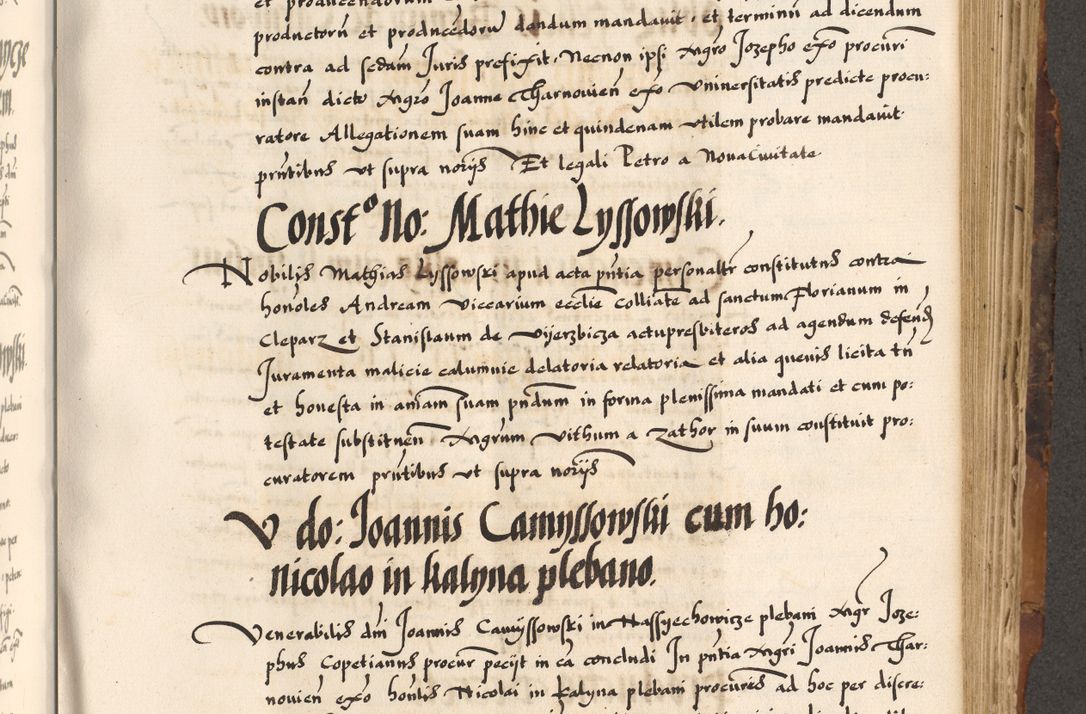 productorũ et producẽdorũ dandum mandauit · et terminũ ad dicendum
contra ad sedam Juris prefixit · Necnon ipsi Mgro Jozepho exo procuri
instan dicto Mgro Joanne Tharnouien exo Vniuersitatis predicte procu:
ratore Allegationem suam hinc et quindenam vtilem probare mandauit
pntibus vt supra norijs Et legali Petro a Nouaciuitate
Const° No: Mathie Lyssowski.
Nobilis Mathias Lyssowski apud acta pntia personaltr constitutus contra
honoles Andream Viccarium ecclie Colliate ad sanctum Florianum in
Cleparz et Stanislaum de Vijerzbicza actupresbiteros ad agendum defend
Juramenta malicie calumnie delatoria relatoria et alia queuis licita tn
et honesta in aniam suam pndum in forma plenissima mandati et cum po:
testate substituen Mgrum Vithum a Zathor in suum constituit pro:
curatorem pntibus vt supra norijs
V do: Joannis Camyssowski cum ho:
nicolao in kalyna plebano.
Venerabilis dni Joannis Camyssowski in Nassyechowicze plebani Mgr Joze:
phus Copetianus procur pecijt in ca concludi In pntia Mgri Joannis Thar:
nouien exo honlis Nicolai in kalyna plebani procuris ad hoc per discre: